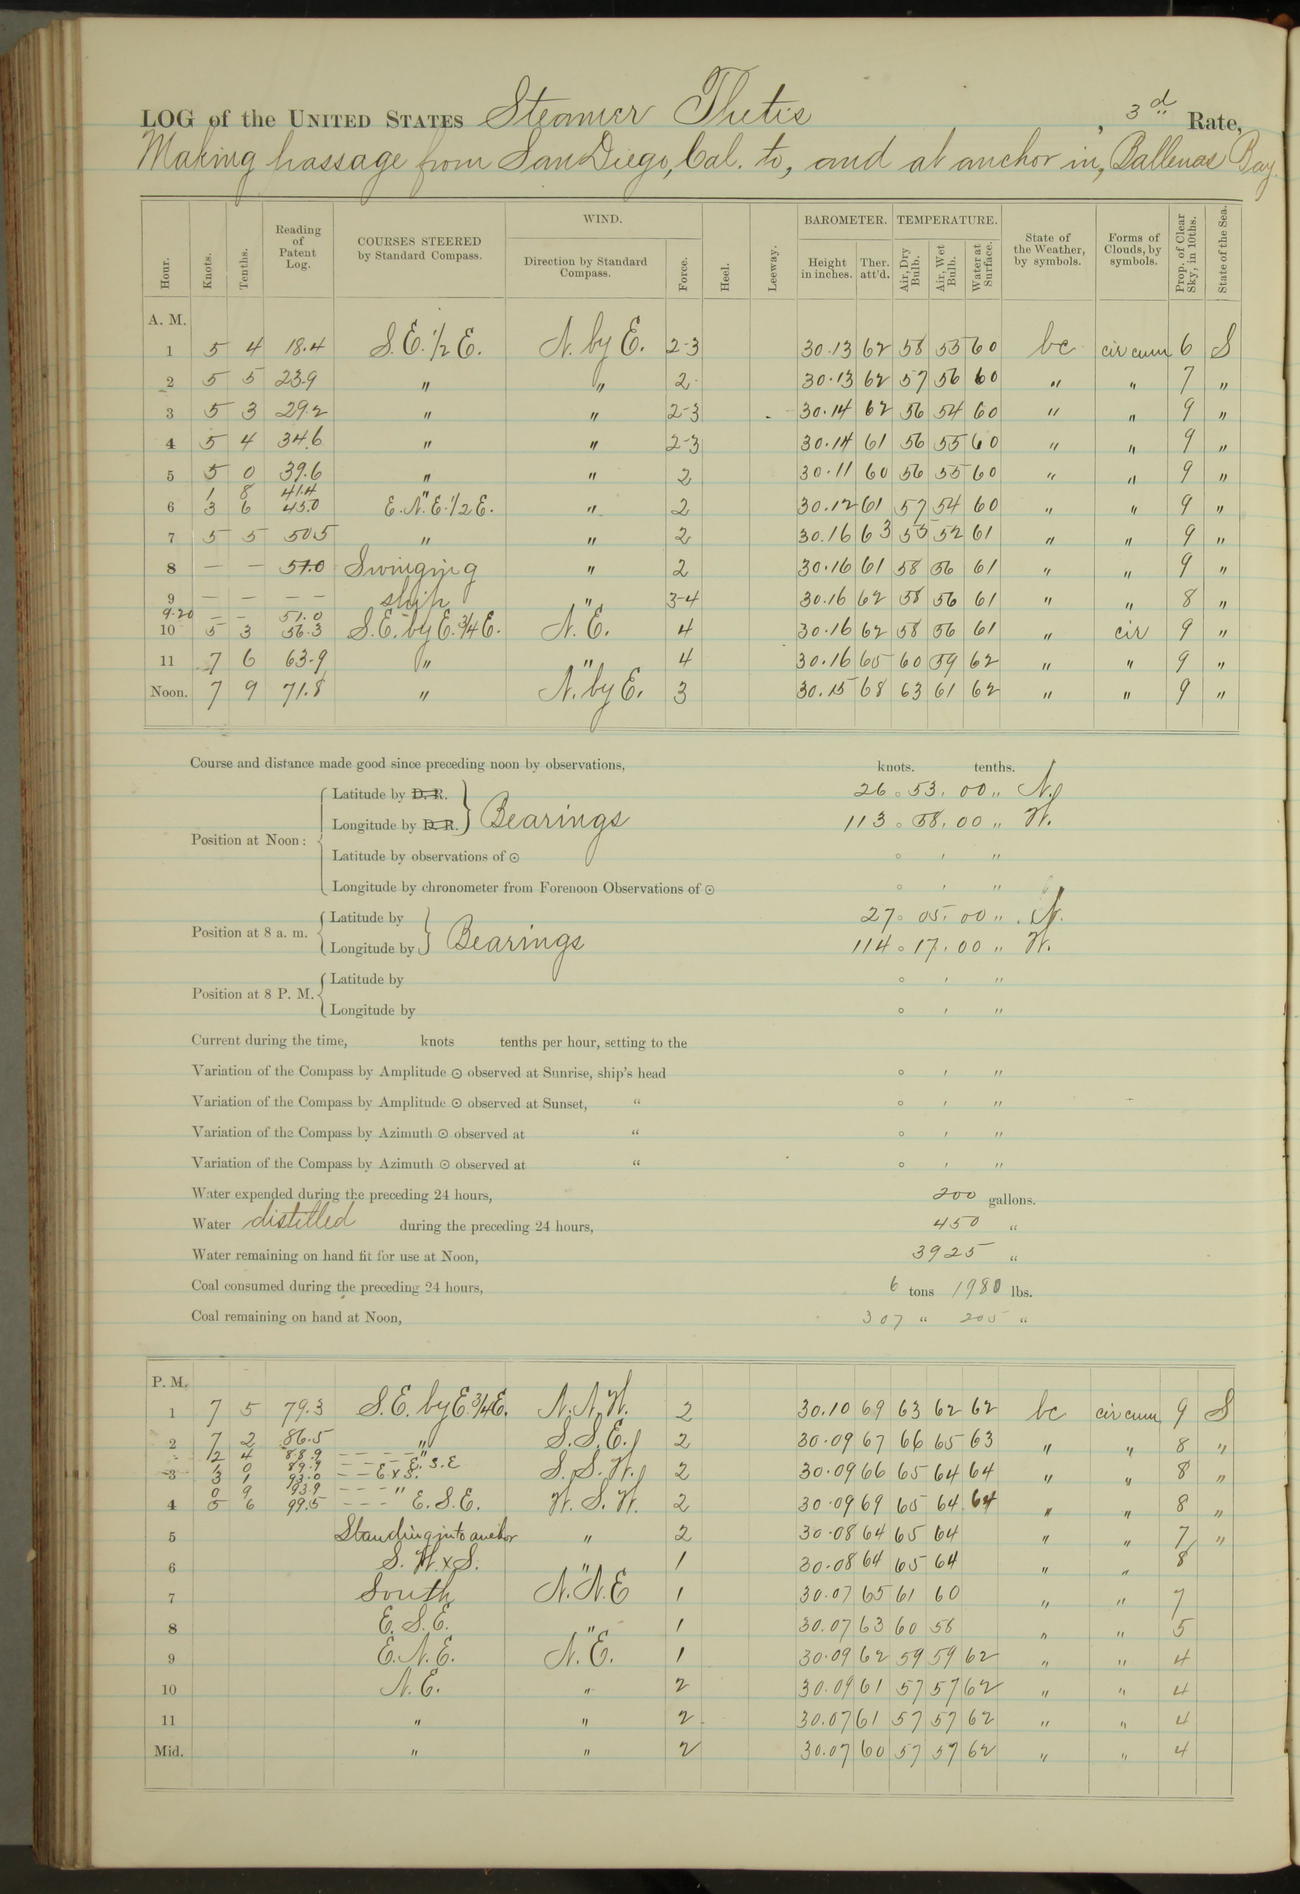 LOG of the UNITED STATES Steamer Thetis, 3d Rate,
Making passage from San Diego, Cal. to, and at anchor in, Ballenas Bay.
Hour. Knots. Tenths. Reading of Patent Log. COURSES STEERED by Standard Compass. WIND. Direction by Standard Compass. Force. Heel. Leeway. BAROMETER. Height in inches. Ther. att'd. TEMPERATURE. Air, Dry Bulb. Air, Wet Bulb. Water at Surface. State of the Weather, by symbols. Forms of Clouds, by symbols. Prop. of Clear Sky, in 10ths. State of the Sea.
A. M.
1 5 4 18.4 S.E. 1/2 E. N. by E. 2-3 30.13 62 58 55 60 bc cir cum 6 S
2 5 5 23.9 " " 2 30.13 62 57 56 60 " " 7 "
3 5 3 29.2 " " 2-3 30.14 62 56 54 60 " " 9 "
4 5 4 34.6 " " 2-3 30.14 61 56 55 60 " " 9 "
5 5 0 39.6 " " 2 30.11 60 56 55 60 " " 9 "
1 8 41.4 "
6 3 6 45.0 E.N.E. 1/2 E. " 2 30.12 61 57 54 60 " " 9 "
7 5 5 50.5 " " 2 30.16 63 55 52 61 " " 9 "
8 — — 51.0 Swinging " 2 30.16 61 58 56 61 " " 9 "
9 — — — — ship " 3-4 30.16 62 58 56 61 " " 8 "
9.20 — — 51.0
10 5 3 56.3 S.E. by E. 3/4 E. N.E. 4 30.16 62 58 56 61 " cir 9 "
11 7 6 63.9 " " 4 30.16 65 60 59 62 " " 9 "
Noon. 7 9 71.8 " N. by E. 3 30.15 68 63 61 62 " " 9 "
Course and distance made good since preceding noon by observations, knots. tenths.
Position at Noon: Latitude by D. R. Bearings 26 ° 53 ' 00 " N.
Longitude by D. R. 113 ° 58 ' 00 " W.
Latitude by observations of ☉ ° ' "
Longitude by chronometer from Forenoon Observations of ☉ ° ' "
Position at 8 a. m. Latitude by Bearings 27 ° 05 ' 00 " N.
Longitude by 114 ° 17 ' 00 " W.
Position at 8 P. M. Latitude by ° ' "
Longitude by ° ' "
Current during the time, knots tenths per hour, setting to the
Variation of the Compass by Amplitude ☉ observed at Sunrise, ship's head ° ' "
Variation of the Compass by Amplitude ☉ observed at Sunset, “ ° ' "
Variation of the Compass by Azimuth ☉ observed at “ ° ' "
Variation of the Compass by Azimuth ☉ observed at “ ° ' "
Water expended during the preceding 24 hours, 200 gallons.
Water distilled during the preceding 24 hours, 450 “
Water remaining on hand fit for use at Noon, 3925 “
Coal consumed during the preceding 24 hours, 6 tons 1980 lbs.
Coal remaining on hand at Noon, 307 “ 205 “
P. M.
1 7 5 79.3 S.E. by E. 3/4 E. N.N.W. 2 30.10 69 63 62 62 bc cir cum 9 S
2 7 2 86.5 " S.S.E. 2 30.09 67 66 65 63 " " 8 "
2 4 88.9 — — — — "
1 0 89.9 — — — — E. S.E
3 3 1 93.0 — — E x S. S.S.W. 2 30.09 66 65 64 64 " " 8 "
0 9 93.9 — — — "
4 5 6 99.5 — — — E.S.E. W.S.W. 2 30.09 69 65 64 64 " " 8 "
5 Standing in to anchor " 2 30.08 64 65 64 " " 7 "
6 S.W. x S. " 1 30.08 64 65 64 " " 8
7 South N.N.E 1 30.07 65 61 60 " " 7
8 E.S.E. " 1 30.07 63 60 58 " " 5
9 E.N.E. N.E. 1 30.09 62 59 59 62 " " 4
10 N.E. " 2 30.09 61 57 57 62 " " 4
11 " " 2 30.07 61 57 57 62 " " 4
Mid. " " 2 30.07 60 57 57 62 " " 4